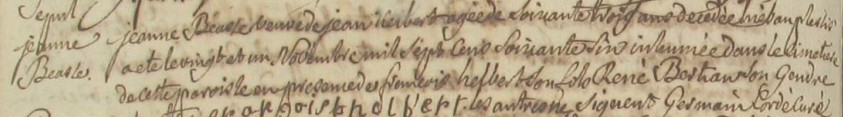 Sepult
jeanne jeanne Beasle veuve de jean helbert agée de soixante trois ans decedée hier
Beasle. a eté le vingt et un Novembre mil sept cens soixante six inhumée dans le Cimetiere
de cette paroisse en presence de françois helbert son René Bertian son Gendre
les autres ne signent Germain curé